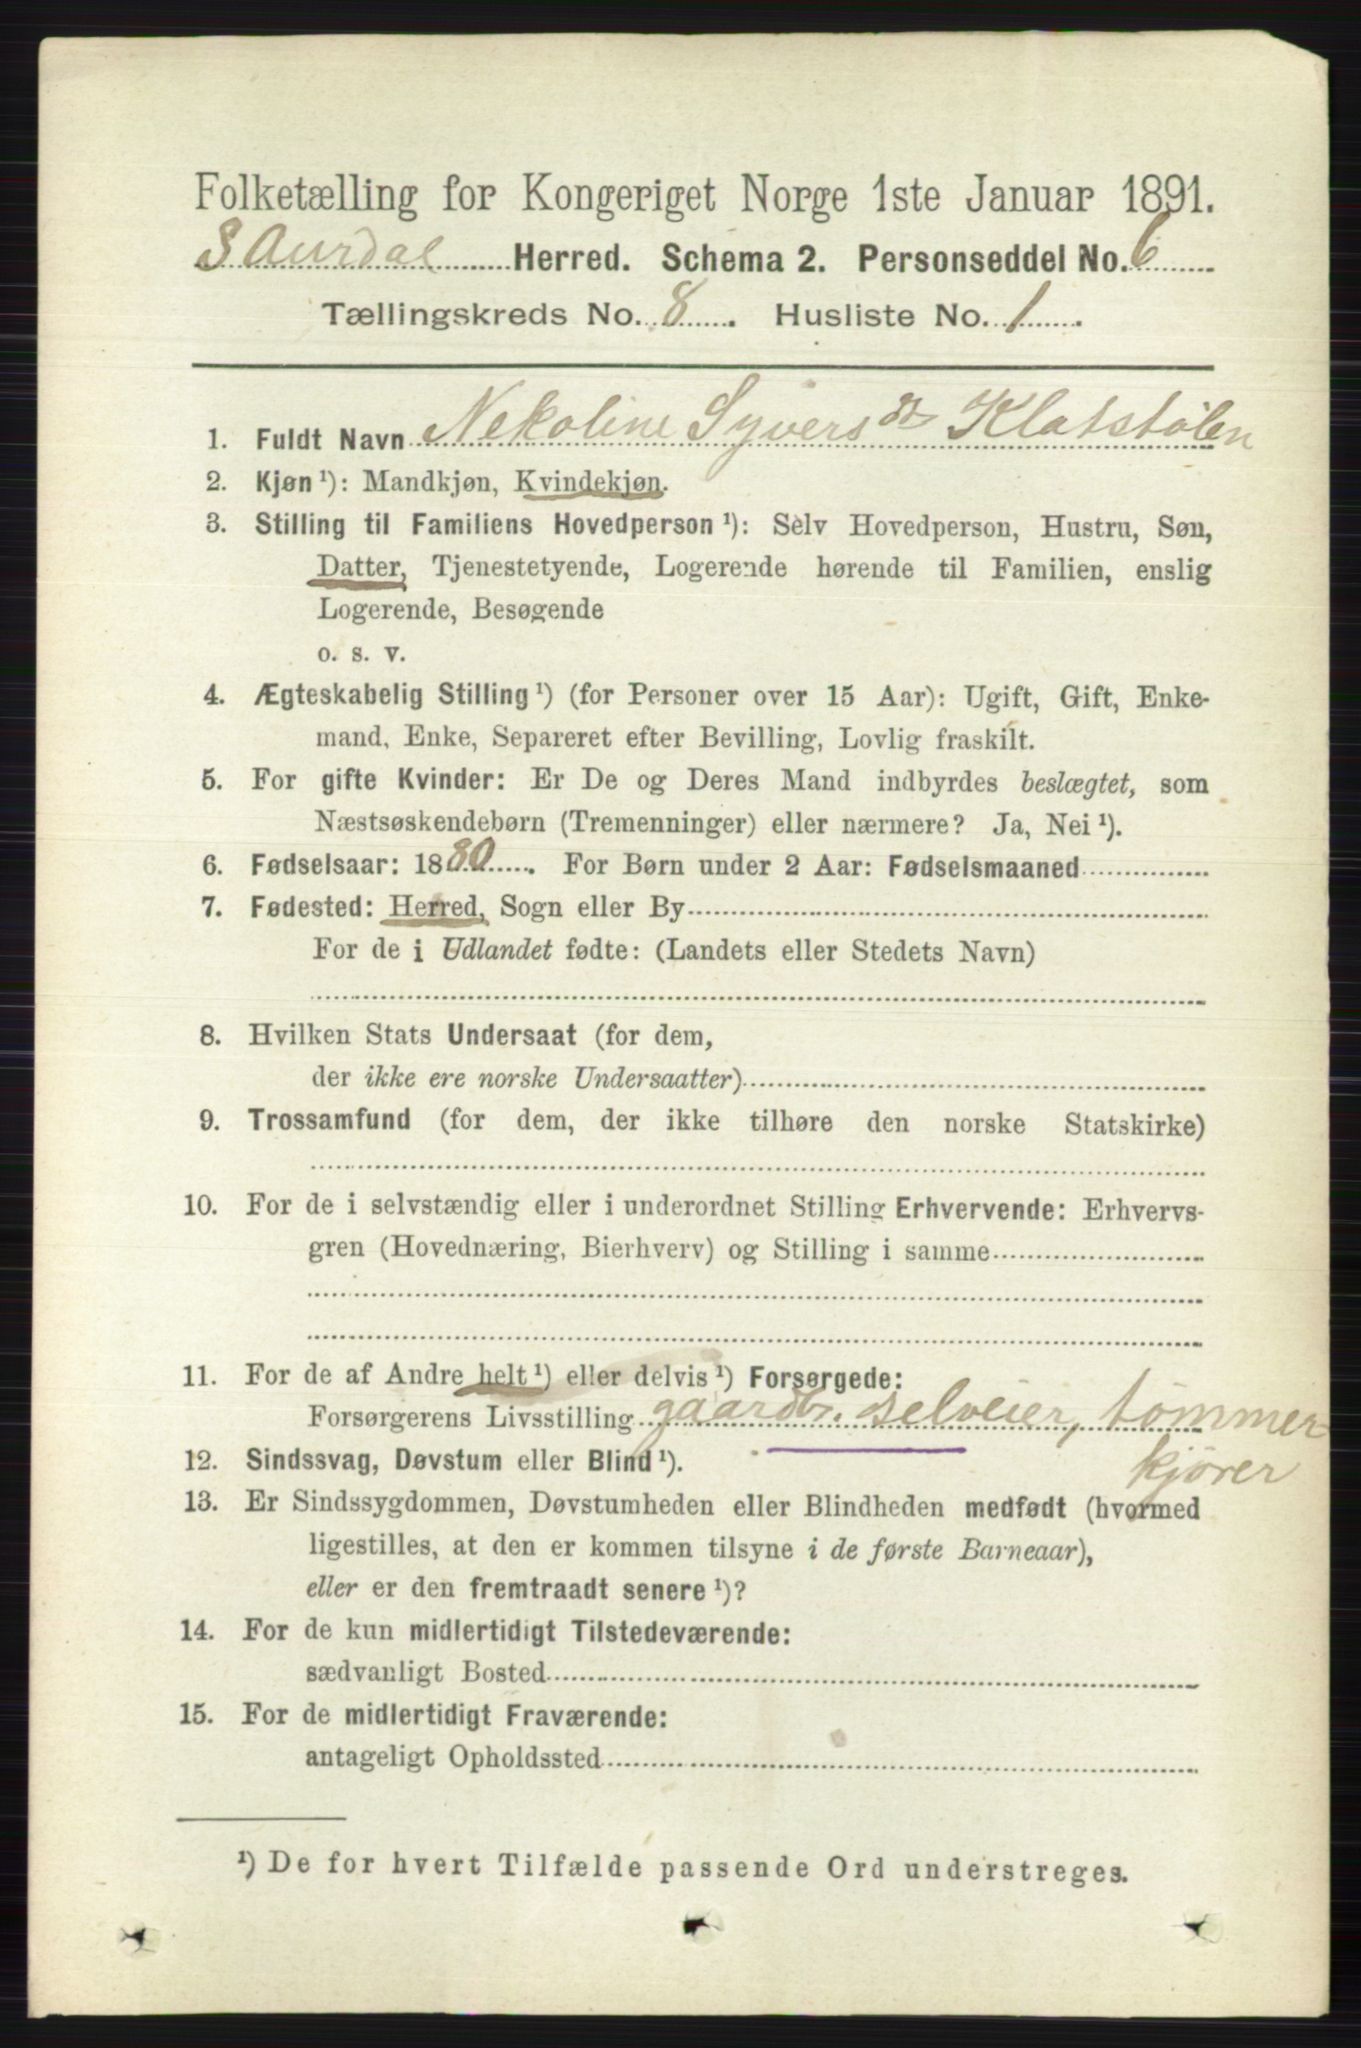 Folketælling for Kongeriget Norge 1ste Januar 1891.
S Aurdal Herred. Schema 2. Personseddel No. 6
Tællingskreds No. 8. Husliste No. 1.
1. Fuldt Navn Nekoline Syversdt Klatstølen
2. Kjøn ¹): Mandkjøn, Kvindekjøn.
3. Stilling til Familiens Hovedperson ¹): Selv Hovedperson, Hustru, Søn,
Datter, Tjenestetyende, Logerende hørende til Familien, enslig
Logerende, Besøgende
o. s. v.
4. Ægteskabelig Stilling ¹) (for Personer over 15 Aar): Ugift, Gift, Enke-
mand, Enke, Separeret efter Bevilling, Lovlig fraskilt.
5. For gifte Kvinder: Er De og Deres Mand indbyrdes beslægtet, som
Næstsøskendebørn (Tremenninger) eller nærmere? Ja, Nei ¹).
6. Fødselsaar: 1880. For Børn under 2 Aar: Fødselsmaaned
7. Fødested: Herred, Sogn eller By
For de i Udlandet fødte: (Landets eller Stedets Navn)
8. Hvilken Stats Undersaat (for dem,
der ikke ere norske Undersaatter)
9. Trossamfund (for dem, der ikke tilhøre den norske Statskirke)
10. For de i selvstændig eller i underordnet Stilling Erhvervende: Erhvervs-
gren (Hovednæring, Bierhverv) og Stilling i samme
11. For de af Andre helt ¹) eller delvis ¹) Forsørgede:
Forsørgerens Livsstilling gaardbr. selveier, tømmer
kjører
12. Sindssvag, Døvstum eller Blind ¹).
13. Er Sindssygdommen, Døvstumheden eller Blindheden medfødt (hvormed
ligestilles, at den er kommen tilsyne i de første Barneaar),
eller er den fremtraadt senere ¹)?
14. For de kun midlertidigt Tilstedeværende:
sædvanligt Bosted
15. For de midlertidigt Fraværende:
antageligt Opholdssted
¹) De for hvert Tilfælde passende Ord understreges.